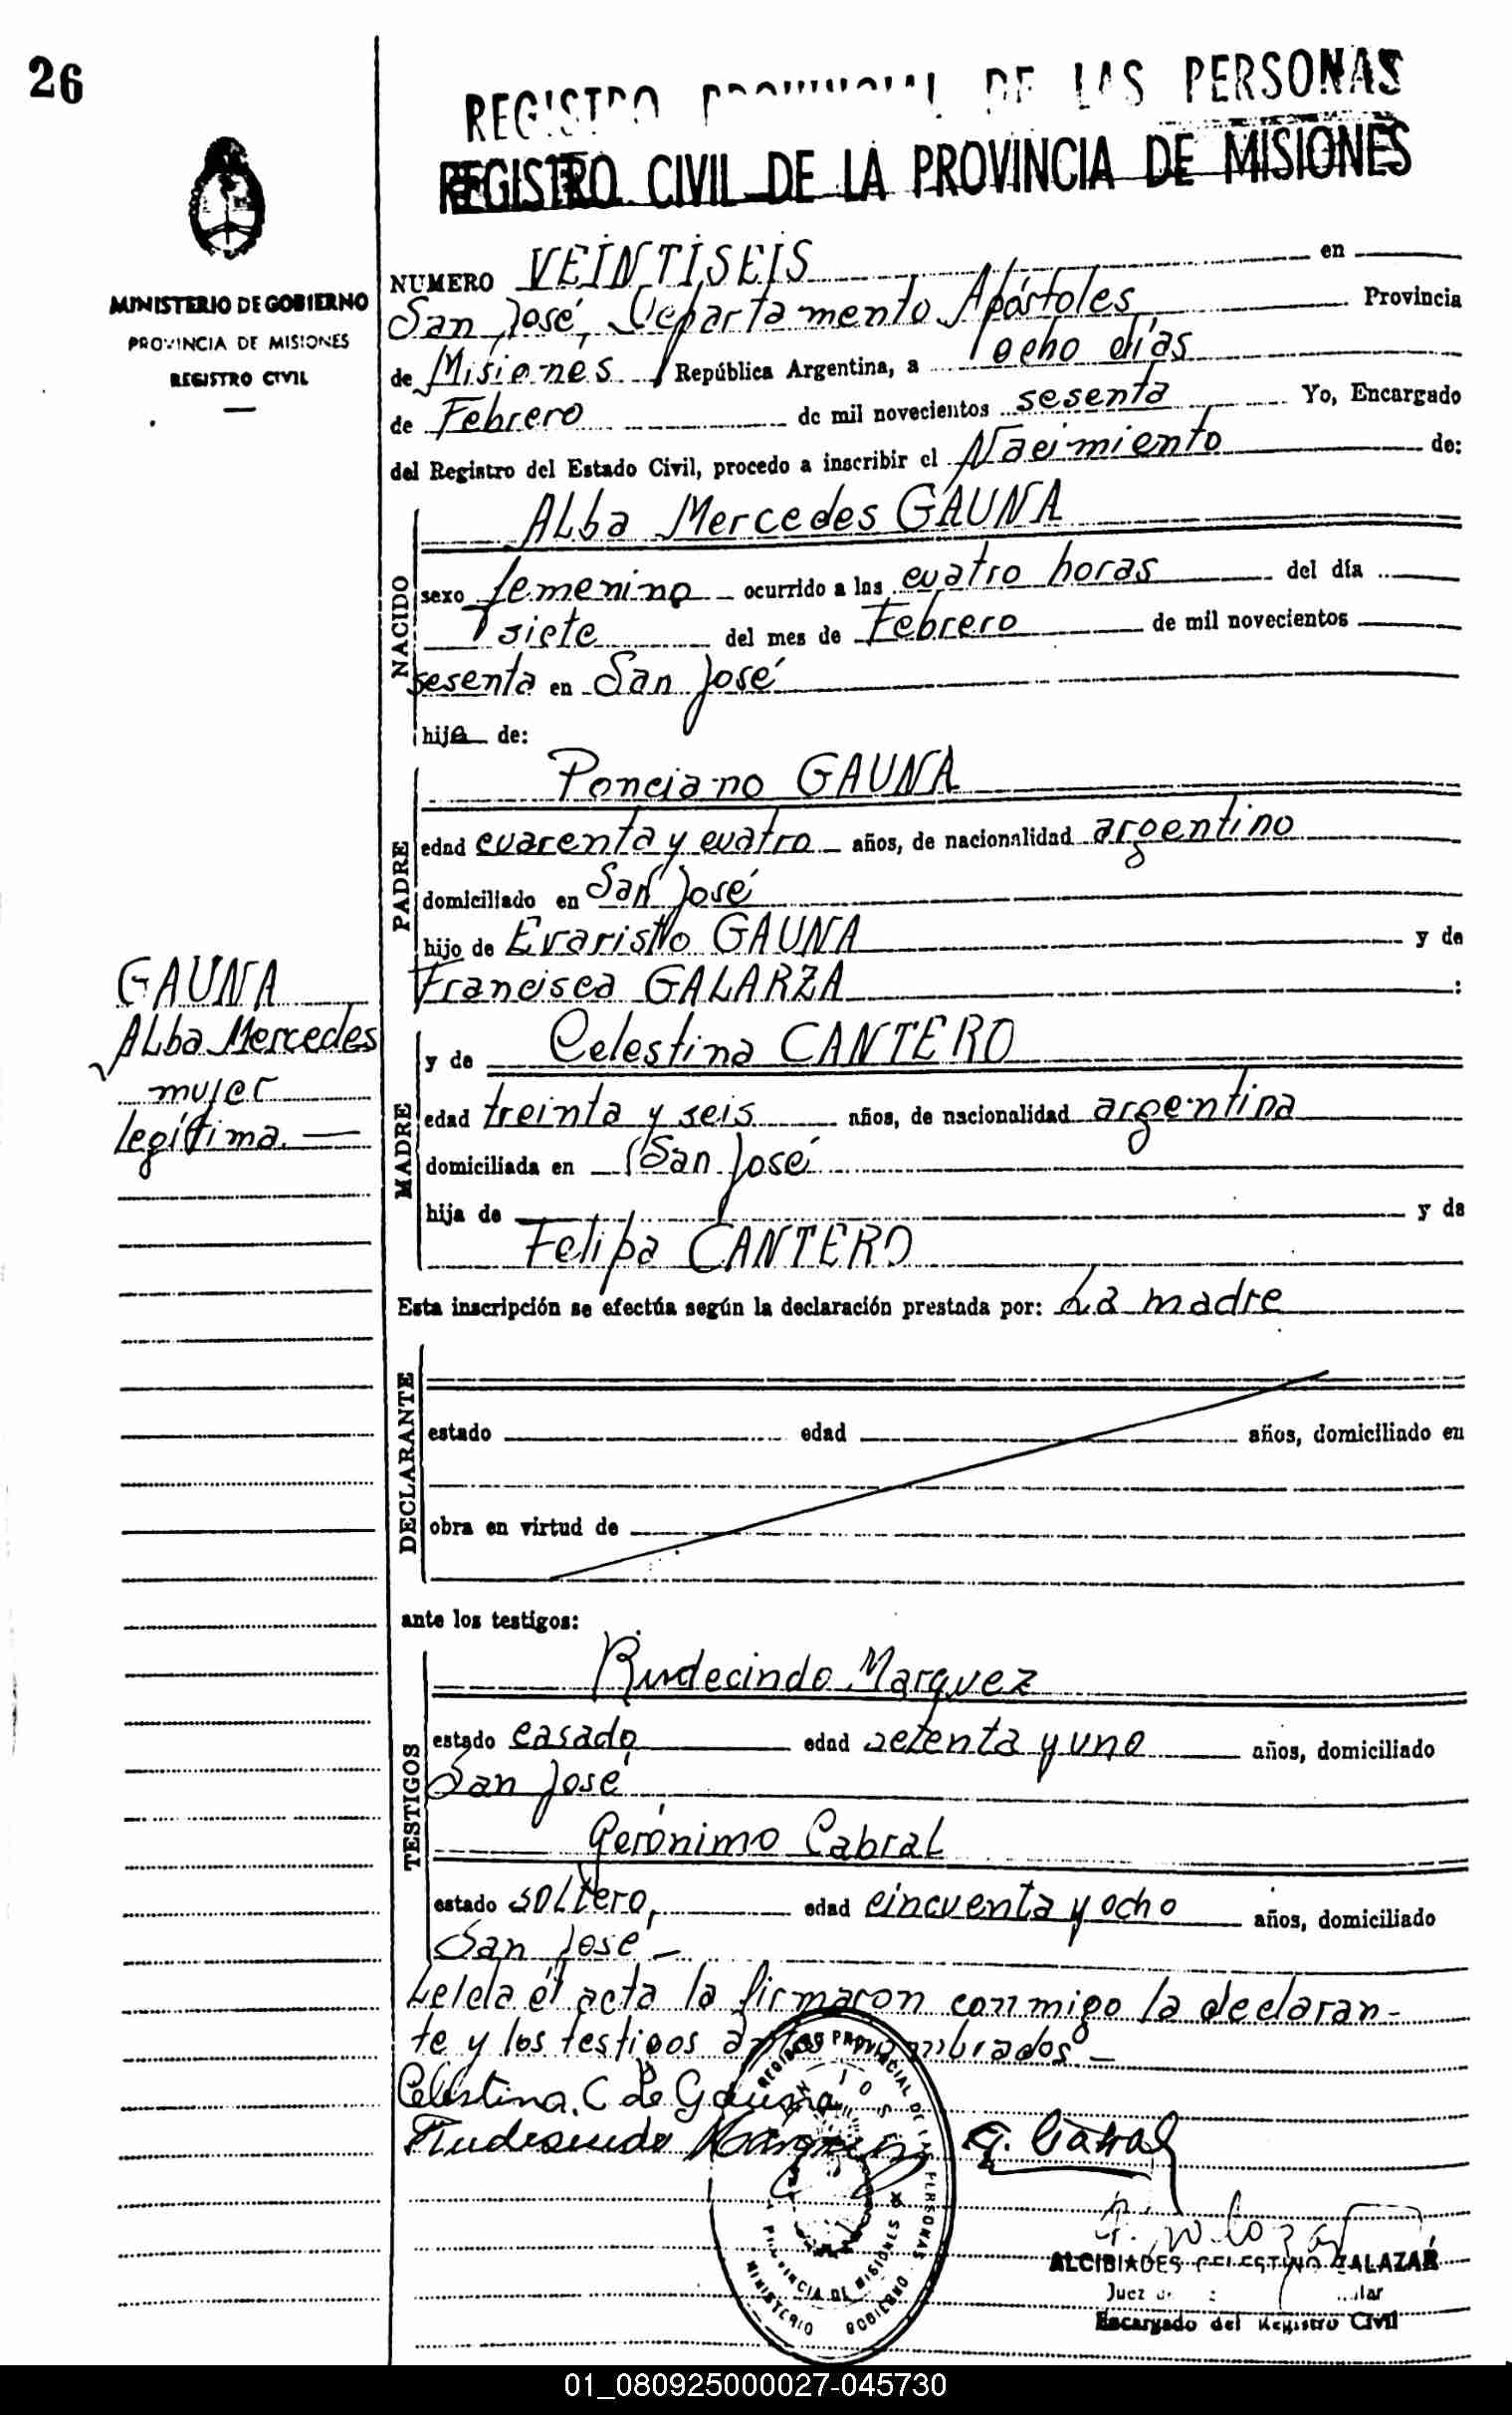 26
REGISTRO PROVINCIAL DE LAS PERSONAS
REGISTRO CIVIL DE LA PROVINCIA DE MISIONES
MINISTERIO DE GOBIERNO
PROVINCIA DE MISIONES
REGISTRO CIVIL
NUMERO VEINTISEIS en
San José, Departamento Apóstoles Provincia
de Misiones República Argentina, a ocho días
de Febrero de mil novecientos sesenta Yo, Encargado
del Registro del Estado Civil, procedo a inscribir el Nacimiento de:
NACIDO
Alba Mercedes GAUNA
sexo femenino ocurrido a las cuatro horas del día
siete del mes de Febrero de mil novecientos
sesenta en San José
hija de:
PADRE
Ponciano GAUNA
edad cuarenta y cuatro años, de nacionalidad argentino
domiciliado en San José
hijo de Evaristo GAUNA y de
Francisca GALARZA :
GAUNA
Alba Mercedes
mujer
legítima.—
MADRE
y de Celestina CANTERO
edad treinta y seis años, de nacionalidad argentina
domiciliada en San José
hija de y de
Felipa CANTERO
Esta inscripción se efectúa según la declaración prestada por: La madre
DECLARANTE
estado edad años, domiciliado en
obra en virtud de
ante los testigos:
TESTIGOS
Rudecindo Marquez
estado casado edad setenta y uno años, domiciliado
San José
Gerónimo Cabral
estado soltero, edad cincuenta y ocho años, domiciliado
San José —
Leída el acta la firmaron conmigo la declaran-
te y los testigos
Celestina. C de Gauna
Rudesindo Marquez G. Cabral
REGISTRO PROVINCIAL DE LAS PERSONAS
SAN JOSE
PROVINCIA DE MISIONES
MINISTERIO GOBIERNO
ALCIBIADES CELESTINO ZALAZAR
Juez
Encargado del Registro Civil
01_080925000027-045730